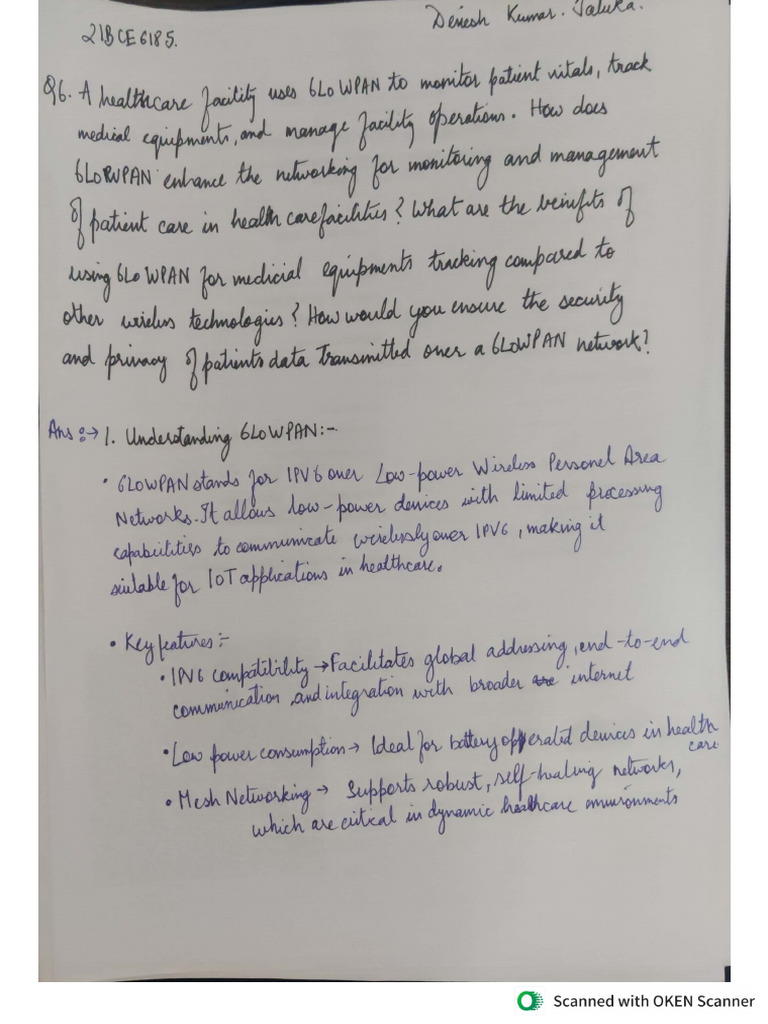 21BCE6185.
Denesh Kumar. Jaluka.
Q6. A healthcare facility uses 6LoWPAN to monitor patient vitals, track
medical equipments, and manage facility operations. How does
6LoRWPAN enhance the networking for monitoring and management
of patient care in health carefacilities? What are the benifits of
using 6LoWPAN for medicial equipments tracking compared to
other wireless technologies? How would you ensure the security
and privacy of patients data transmitted over a 6LOWPAN network?
Ans :→ 1. Understanding 6LOWPAN:-
• 6LOWPAN stands for IPV6 over Low-power Wireless Personel Area
Networks. It allows low-power devices with limited processing
capabilities to communicate wirelessly over IPV6, making it
suitable for IoT applications in healthcare.
• Key features:-
• IPV6 compatibility → Facilitates global addressing, end-to-end
communication, and integration with broader internet
• Low power consumption → Ideal for battery operated devices in health
care
• Mesh Networking → Supports robust, self-healing networks,
which are critical in dynamic healthcare environments
Scanned with OKEN Scanner